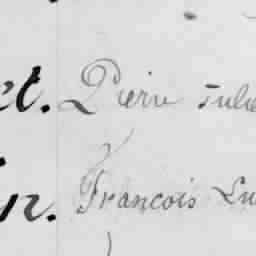 et. Pierre Julie
in. François Lu